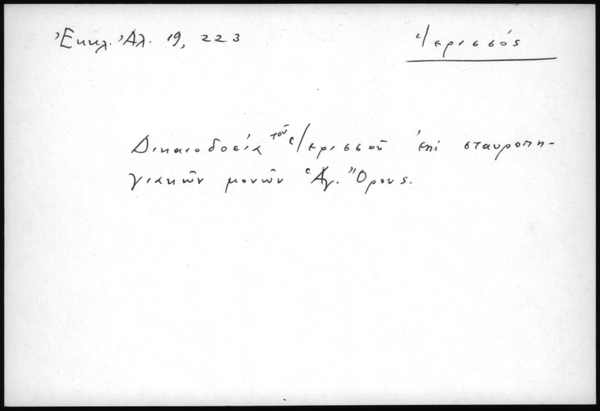 Ἐκκλ. Ἀλ. 19, 223
Ἱερισσός
Δικαιοδοσία τοῦ Ἱερισσοῦ ἐπὶ σταυροπη-
γιακῶν μονῶν Ἁγ. Ὄρους.